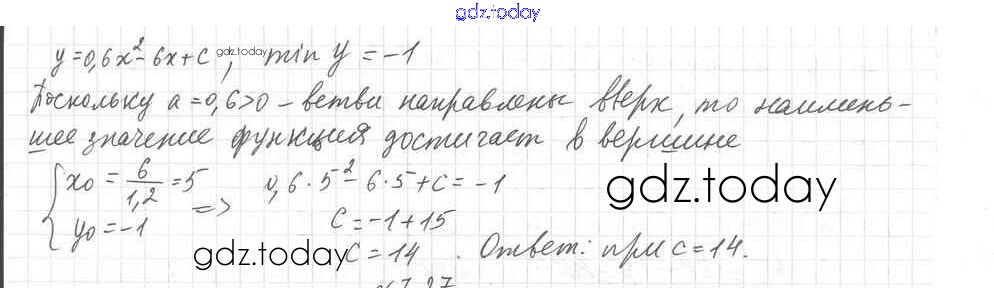 gdz.today
y=0,6x²-6x+c gdz.today, min y = -1
Поскольку a=0,6>0 – ветви направлены вверх, то наимень-
шее значение функция достигает в вершине
{ x₀ = 6/1,2 = 5 0,6·5²-6·5+c = -1 gdz.today
y₀ = -1 => c = -1+15
gdz.today c = 14. Ответ: при c=14.